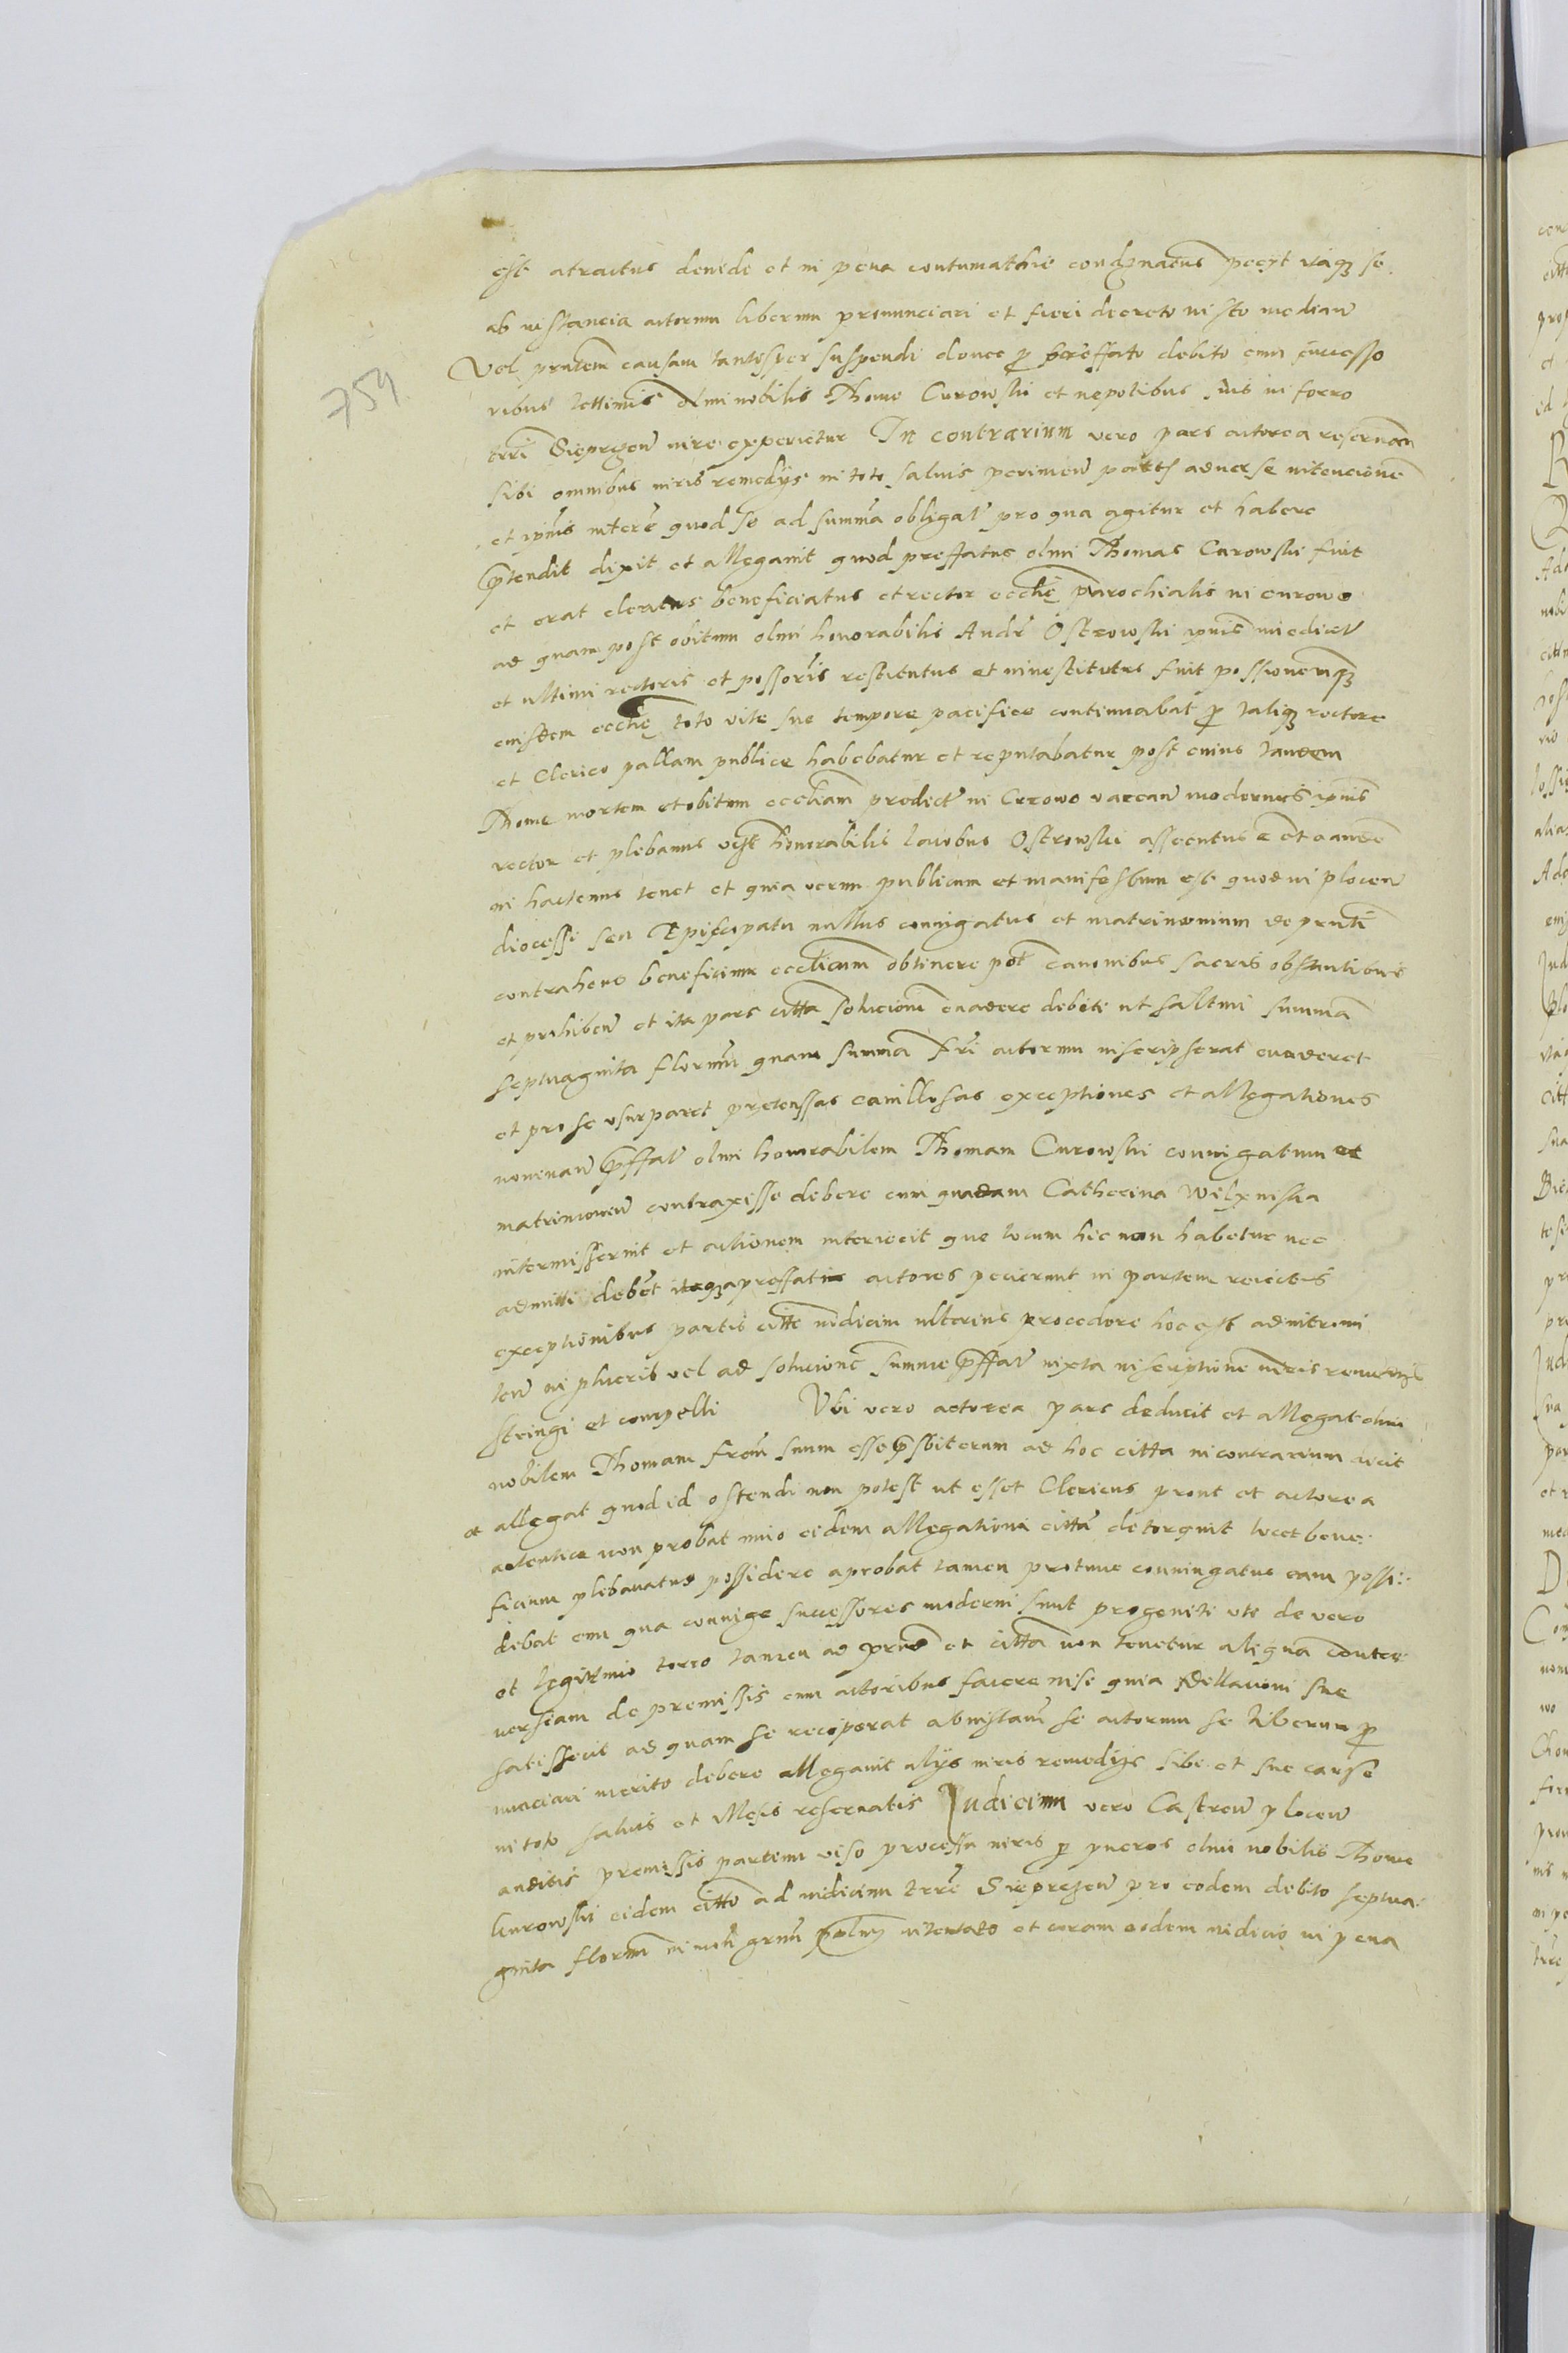 754
est atractus deinde et in pena contumatiae condemnatus pecyt itaq3 se
ab instancia actorum liberum pronunciari et fieri decreto iusto median
Vel pntem causam tantisper suspendi donec p prefato debito cum successo
ribus lettimis olim nobilis Thome Curowski et nepotibus suis in foero
trri Sieprzen iure experietur In contrarium vero pars actorea reseruan
sibi omnibus iuris remedys in toto saluis perimen partis aduerse intencione
et ipius intere quod se ad summa obligat pro qua agitur et habere
ptendit dixit et allegauit quod preffatus olim Thomas Curowski fuit
et erat cleratus beneficiatus et rector ecclie parochialis in curowo
ad quam post obitum olim honorabilis Andr Ostrowski ipius imediat
et ultimi rectoris et possoris restitutus et inuestitutus fuit possionemq3
eiusdem ecclie toto vite sue tempore pacifice continuabat p taliq3 rectore
et Clerico pallam publice habebatur et reputabatur post cuius tandem
Thome mortem et obitum eccliam predict in Curowo vacan modernus ipius
rector et plebanus vest honorabilis Iacobus Ostrowski assecutus e et eande
in hactenus tenet et quia verum publicum et manifestum est quod in plocen
diocessi seu Episcopatu nullus coniugatus et matrimonium de pnti
contrahens beneficium ecclicum obtinere pot canonibus sacris obstantibus
et prohiben et ita pars citta solucioni euadere debiti ut saltim summa
septuaginta florenu quam summa fri actorum inscripserat euaderet
et pro se usurparet pretenssas cauillosas exceptiones et allegationes
nominan pffat olim honorabilem Thomam Curowski coniugatum et
matrimonium contraxisse debere cum quadam Catherina Wilxniska
intermisserit et actionem interiecit que locum hic non habetur nec
admitti debet itaq3 preffatie actores pecierunt in partem reiectis
exceptionibus partis citte iudicium ulterius procedere hoc est ad
ten in pluris vel ad solucione summe pffat iuxta inscriptione
stringi et compelli Vbi vero actorea pars deducit et allegat olim
nobilem Thomam frem suum esse psbiterum ad hoc citta in contrarium dicit
et allegat quod id ostendi non potest ut esset Clericus prout et actorea
autentice non probat imo eidem allegationi citta detorquit licet bene
ficium plebanatus possidere aprobat tamen protunc coniungatus eam possi
debat cum qua coniuge successores moderni sunt progeniti uti de vero
et legittimo toreo tamen ad pns et citta non tenetur aliqua contro
versiam de premissis cum actoribus facere nisi quia dellationi sue
satisfecit ad quam se reciperat ab instan se actorum se liberum p
nunciari merito debere allegauit alys iuris remedys sibi et sue cause
in toto saluis et illesis reseruatis Judicium vero Castren plocen
auditis premissis partium viso processu iuris p pueros olim nobilis Thome
Curowski eidem citto ad iudicium terre Sieprzen pro eodem debito septua
ginta floren in polny intentato et coram eodem iudicio in pena